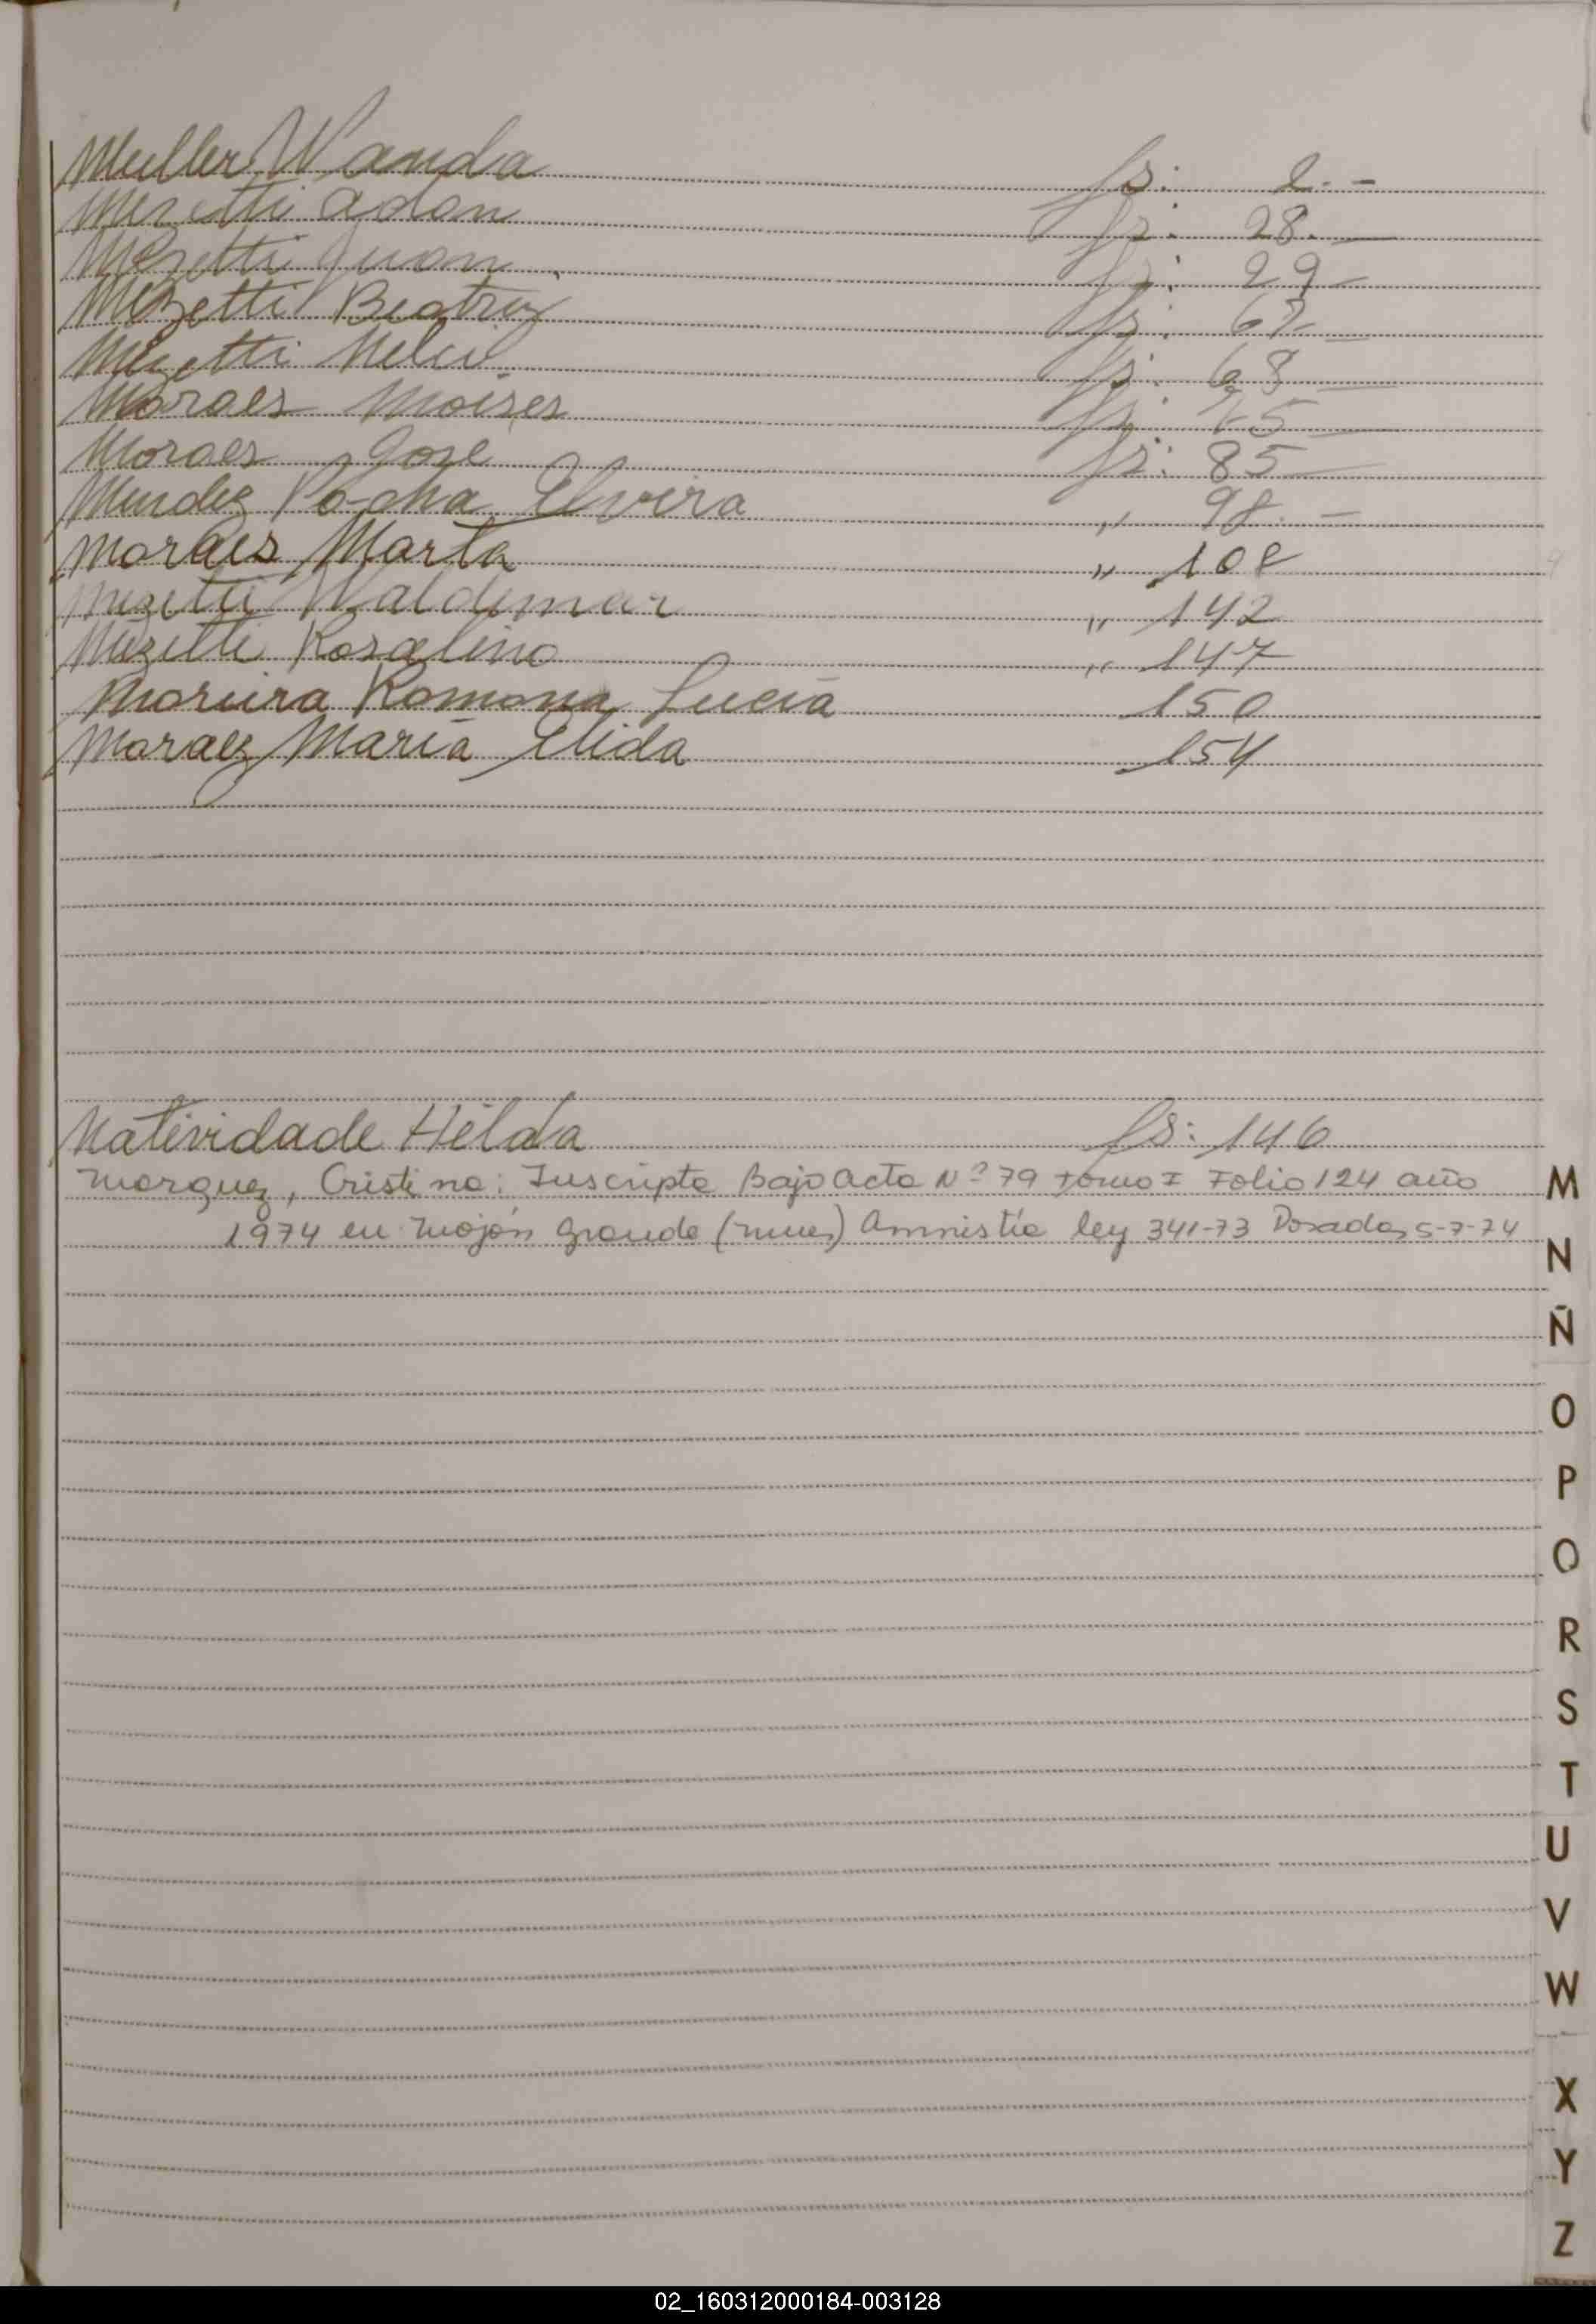 Muller Wanda fs: 2.-
Mezetti Adan fs: 28.-
Mezetti Juan fs: 29-
Mezetti Beatriz fs: 67-
Mezetti Nelci fs: 68-
Moraes Moises fs: 75-
Moraes José fs: 85-
Mendez Pocha Elvira " 98.-
Moraes Marta " 108
Mezetti Waldemar " 142
Mezetti Rosalino " 147
Moreira Romona Lucia 150
Moraez María Elida 154
Natividade Hélda fs: 146
Marquez, Cristina: Inscripta Bajo acta Nº 79 tomo I Folio 124 año
1974 en Mojón grande (mnes) Amnistía ley 341-73 Posadas 5-7-74
M
N
Ñ
O
P
Q
R
S
T
U
V
W
X
Y
Z
02_160312000184-003128